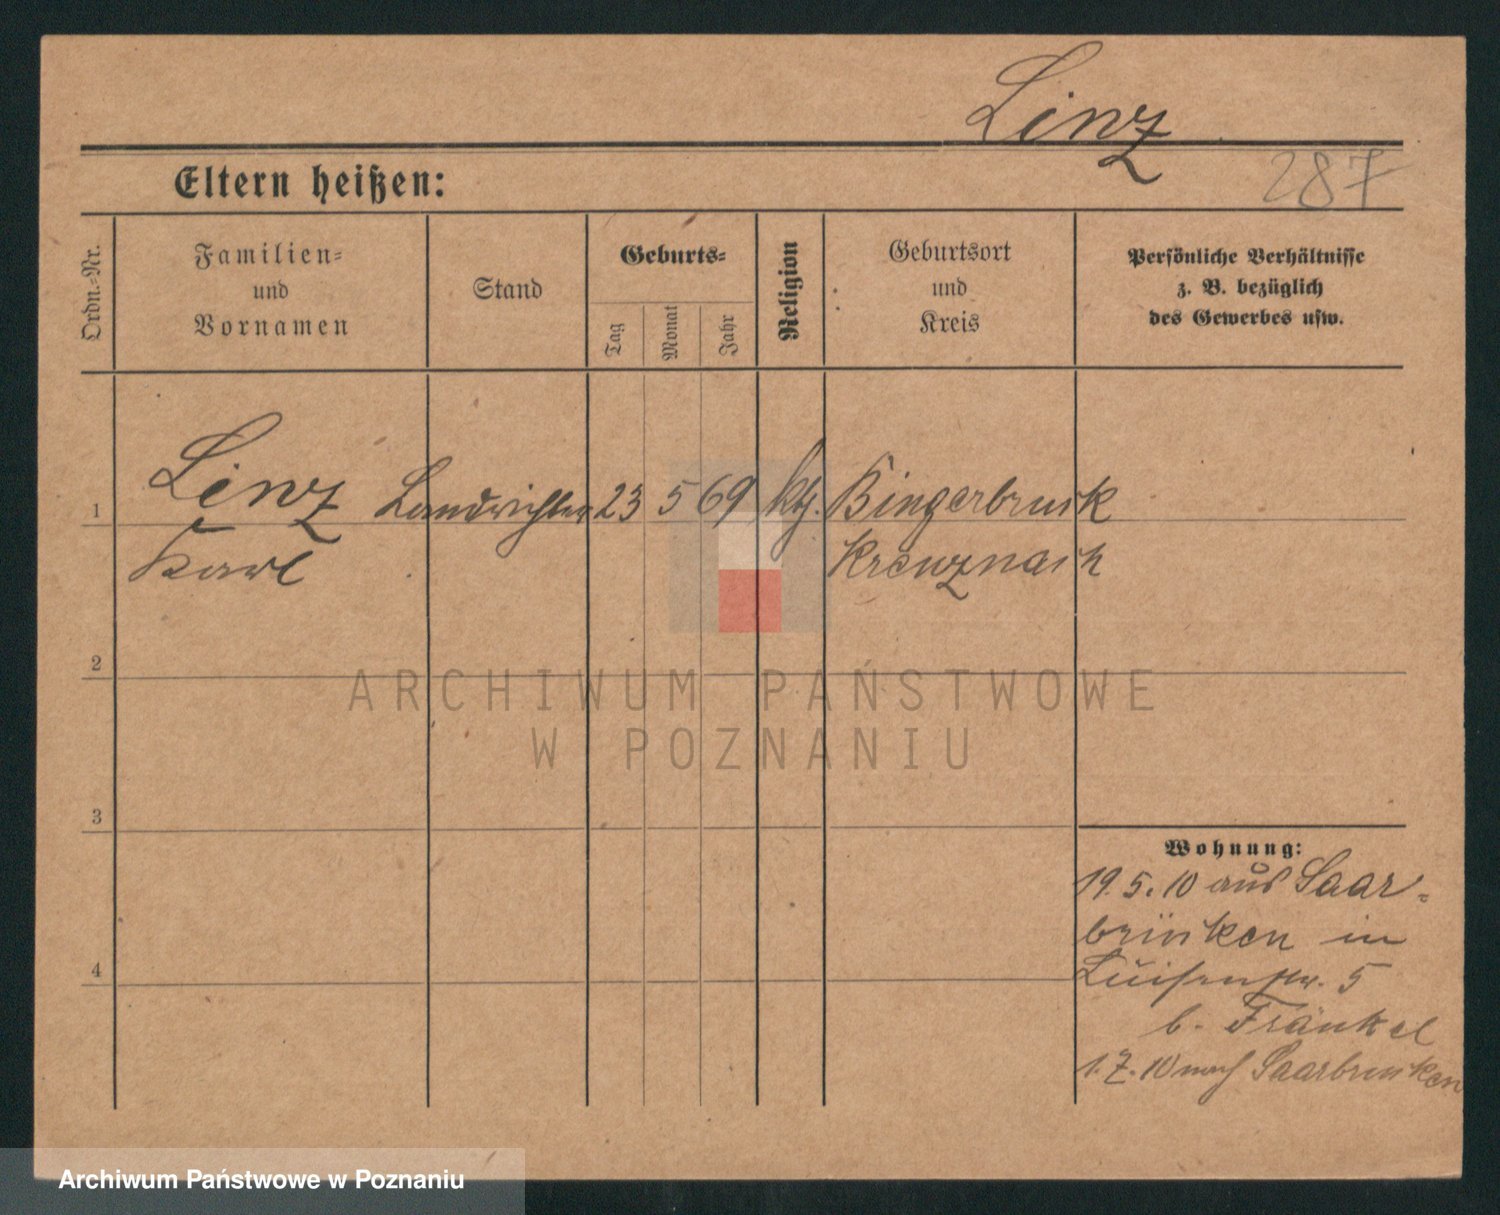 Linz
287
Eltern heißen:
Ordn.-Nr.
Familien-
und
Vornamen
Stand
Geburts-
Tag
Monat
Jahr
Religion
Geburtsort
und
Kreis
Persönliche Verhältnisse
z. B. bezüglich
des Gewerbes usw.
1 Linz Landrichter 23 5 69 kth. Bingerbruck
Karl Kreuznach
2
ARCHIWUM PAŃSTWOWE
W POZNANIU
3
Wohnung:
19.5.10 aus Saar-
brücken in
4
Luisenstr. 5
b. Fränkel
1.7.10 nach Saarbrucken
Archiwum Państwowe w Poznaniu